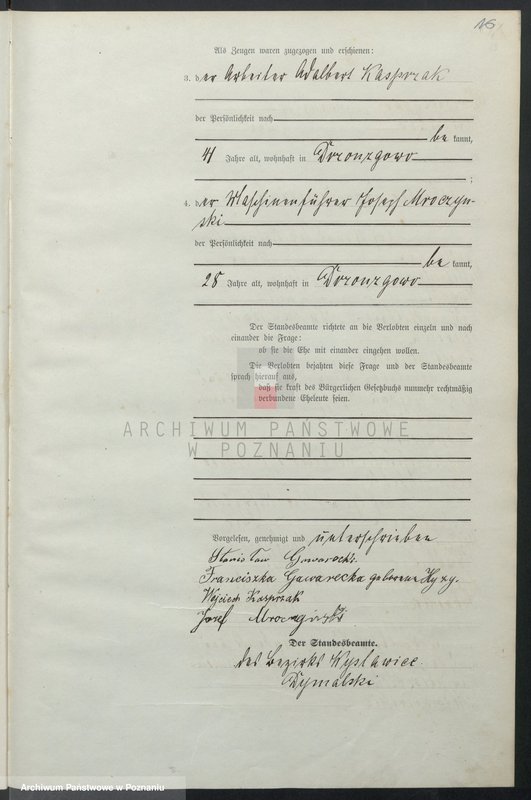 16
Als Zeugen waren zugezogen und erschienen:
3. der Arbeiter Adalbert Kasprzak
der Persönlichkeit nach
be kannt,
41 Jahre alt, wohnhaft in Doronzgowo
;
4. der Maschinenführer Joseph Mroczyn-
ski
der Persönlichkeit nach
be kannt,
28 Jahre alt, wohnhaft in Doronzgowo
Der Standesbeamte richtete an die Verlobten einzeln und nach
einander die Frage:
ob sie die Ehe mit einander eingehen wollen.
Die Verlobten bejahten diese Frage und der Standesbeamte
sprach hierauf aus,
daß sie kraft des Bürgerlichen Gesetzbuchs nunmehr rechtmäßig
verbundene Eheleute seien.
ARCHIWUM PAŃSTWOWE
W POZNANIU
Vorgelesen, genehmigt und unterschrieben
Stanisław Gawarecki
Franciszka Gawarecka geborene Hyzy.
Wojciech Kasprzak
Josef
Der Standesbeamte.
des Bezirks Wyslawice
Dymalski
Archiwum Państwowe w Poznaniu